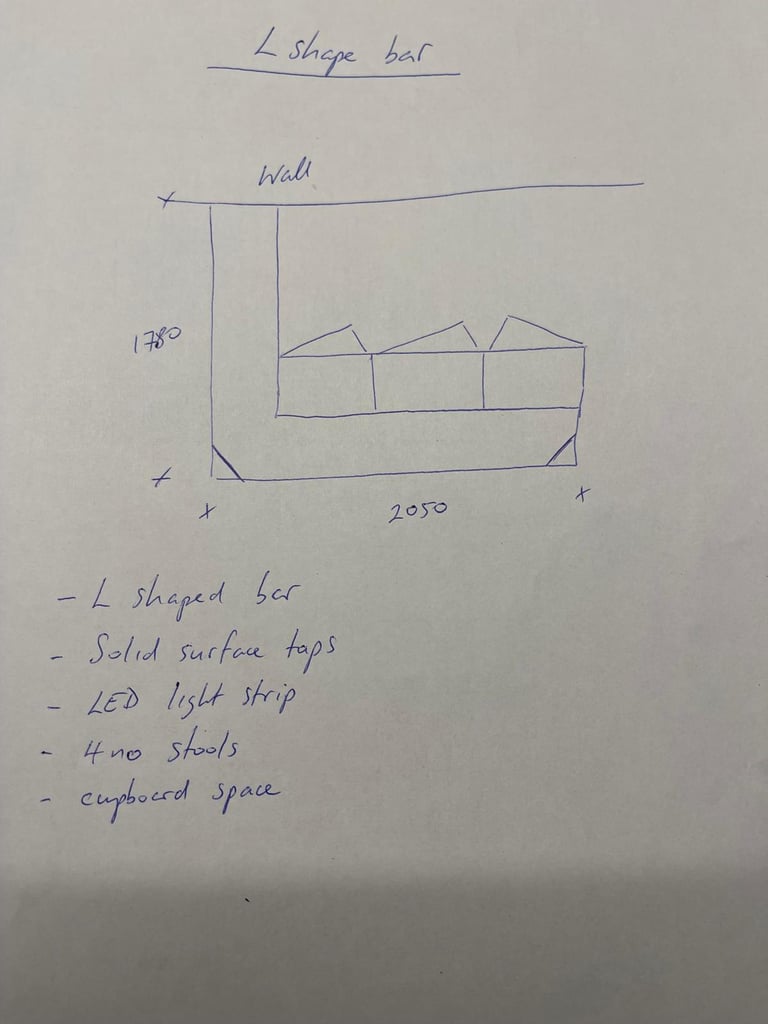 L shape bar
Wall
1780
2050
- L shaped bar
- Solid surface taps
- LED light strip
- 4no stools
- cupboard space